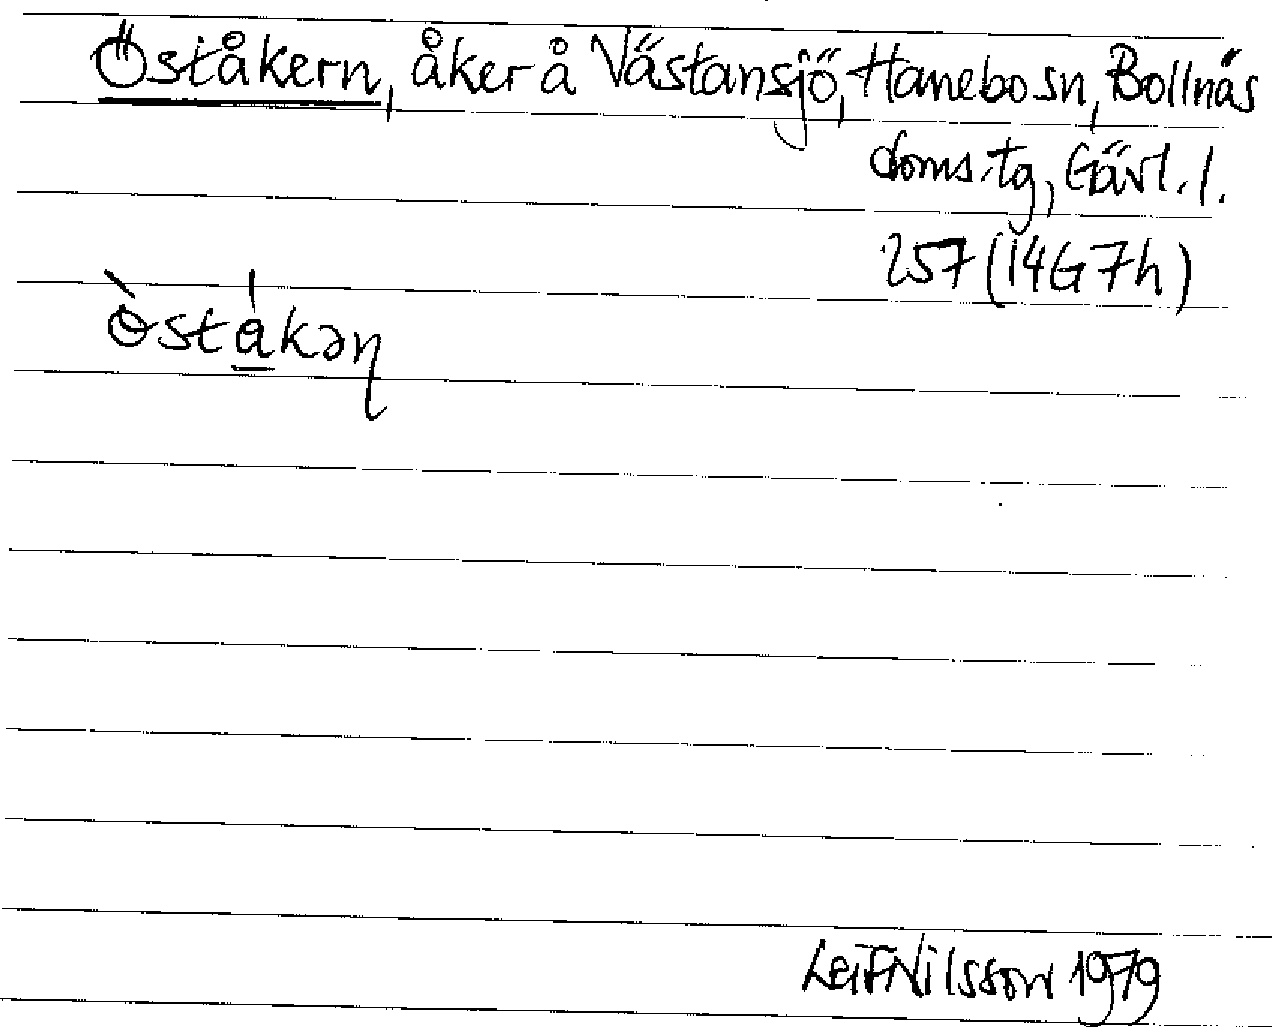 Öståkern, åker å Västansjö, Hanebo sn, Bollnäs
doms.tg, Gävl. l.
257 (14G 7h)
ò̀stá̱kəɳ
Leif Nilsson 1979